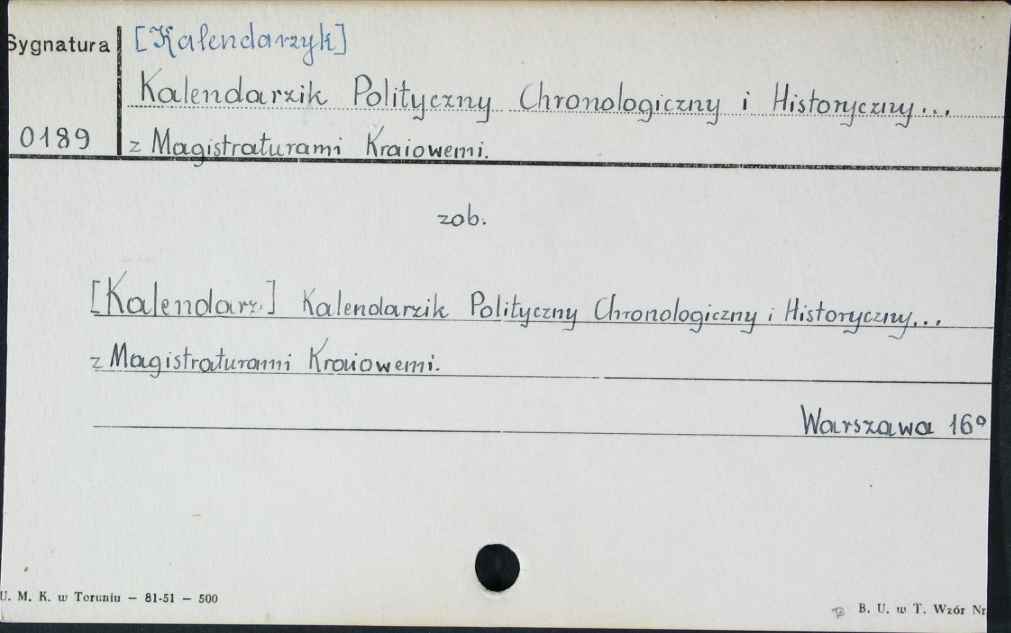 Sygnatura [Kalendarzyk]
Kalendarzik Polityczny Chronologiczny i Historyczny...
0189 z Magistraturami Kraiowemi.
zob.
[Kalendarz.] Kalendarzik Polityczny Chronologiczny i Historyczny...
z Magistraturami Kraiowemi.
Warszawa 16°
U. M. K. w Toruniu — 81-51 — 500
B. U. w T. Wzór Nr